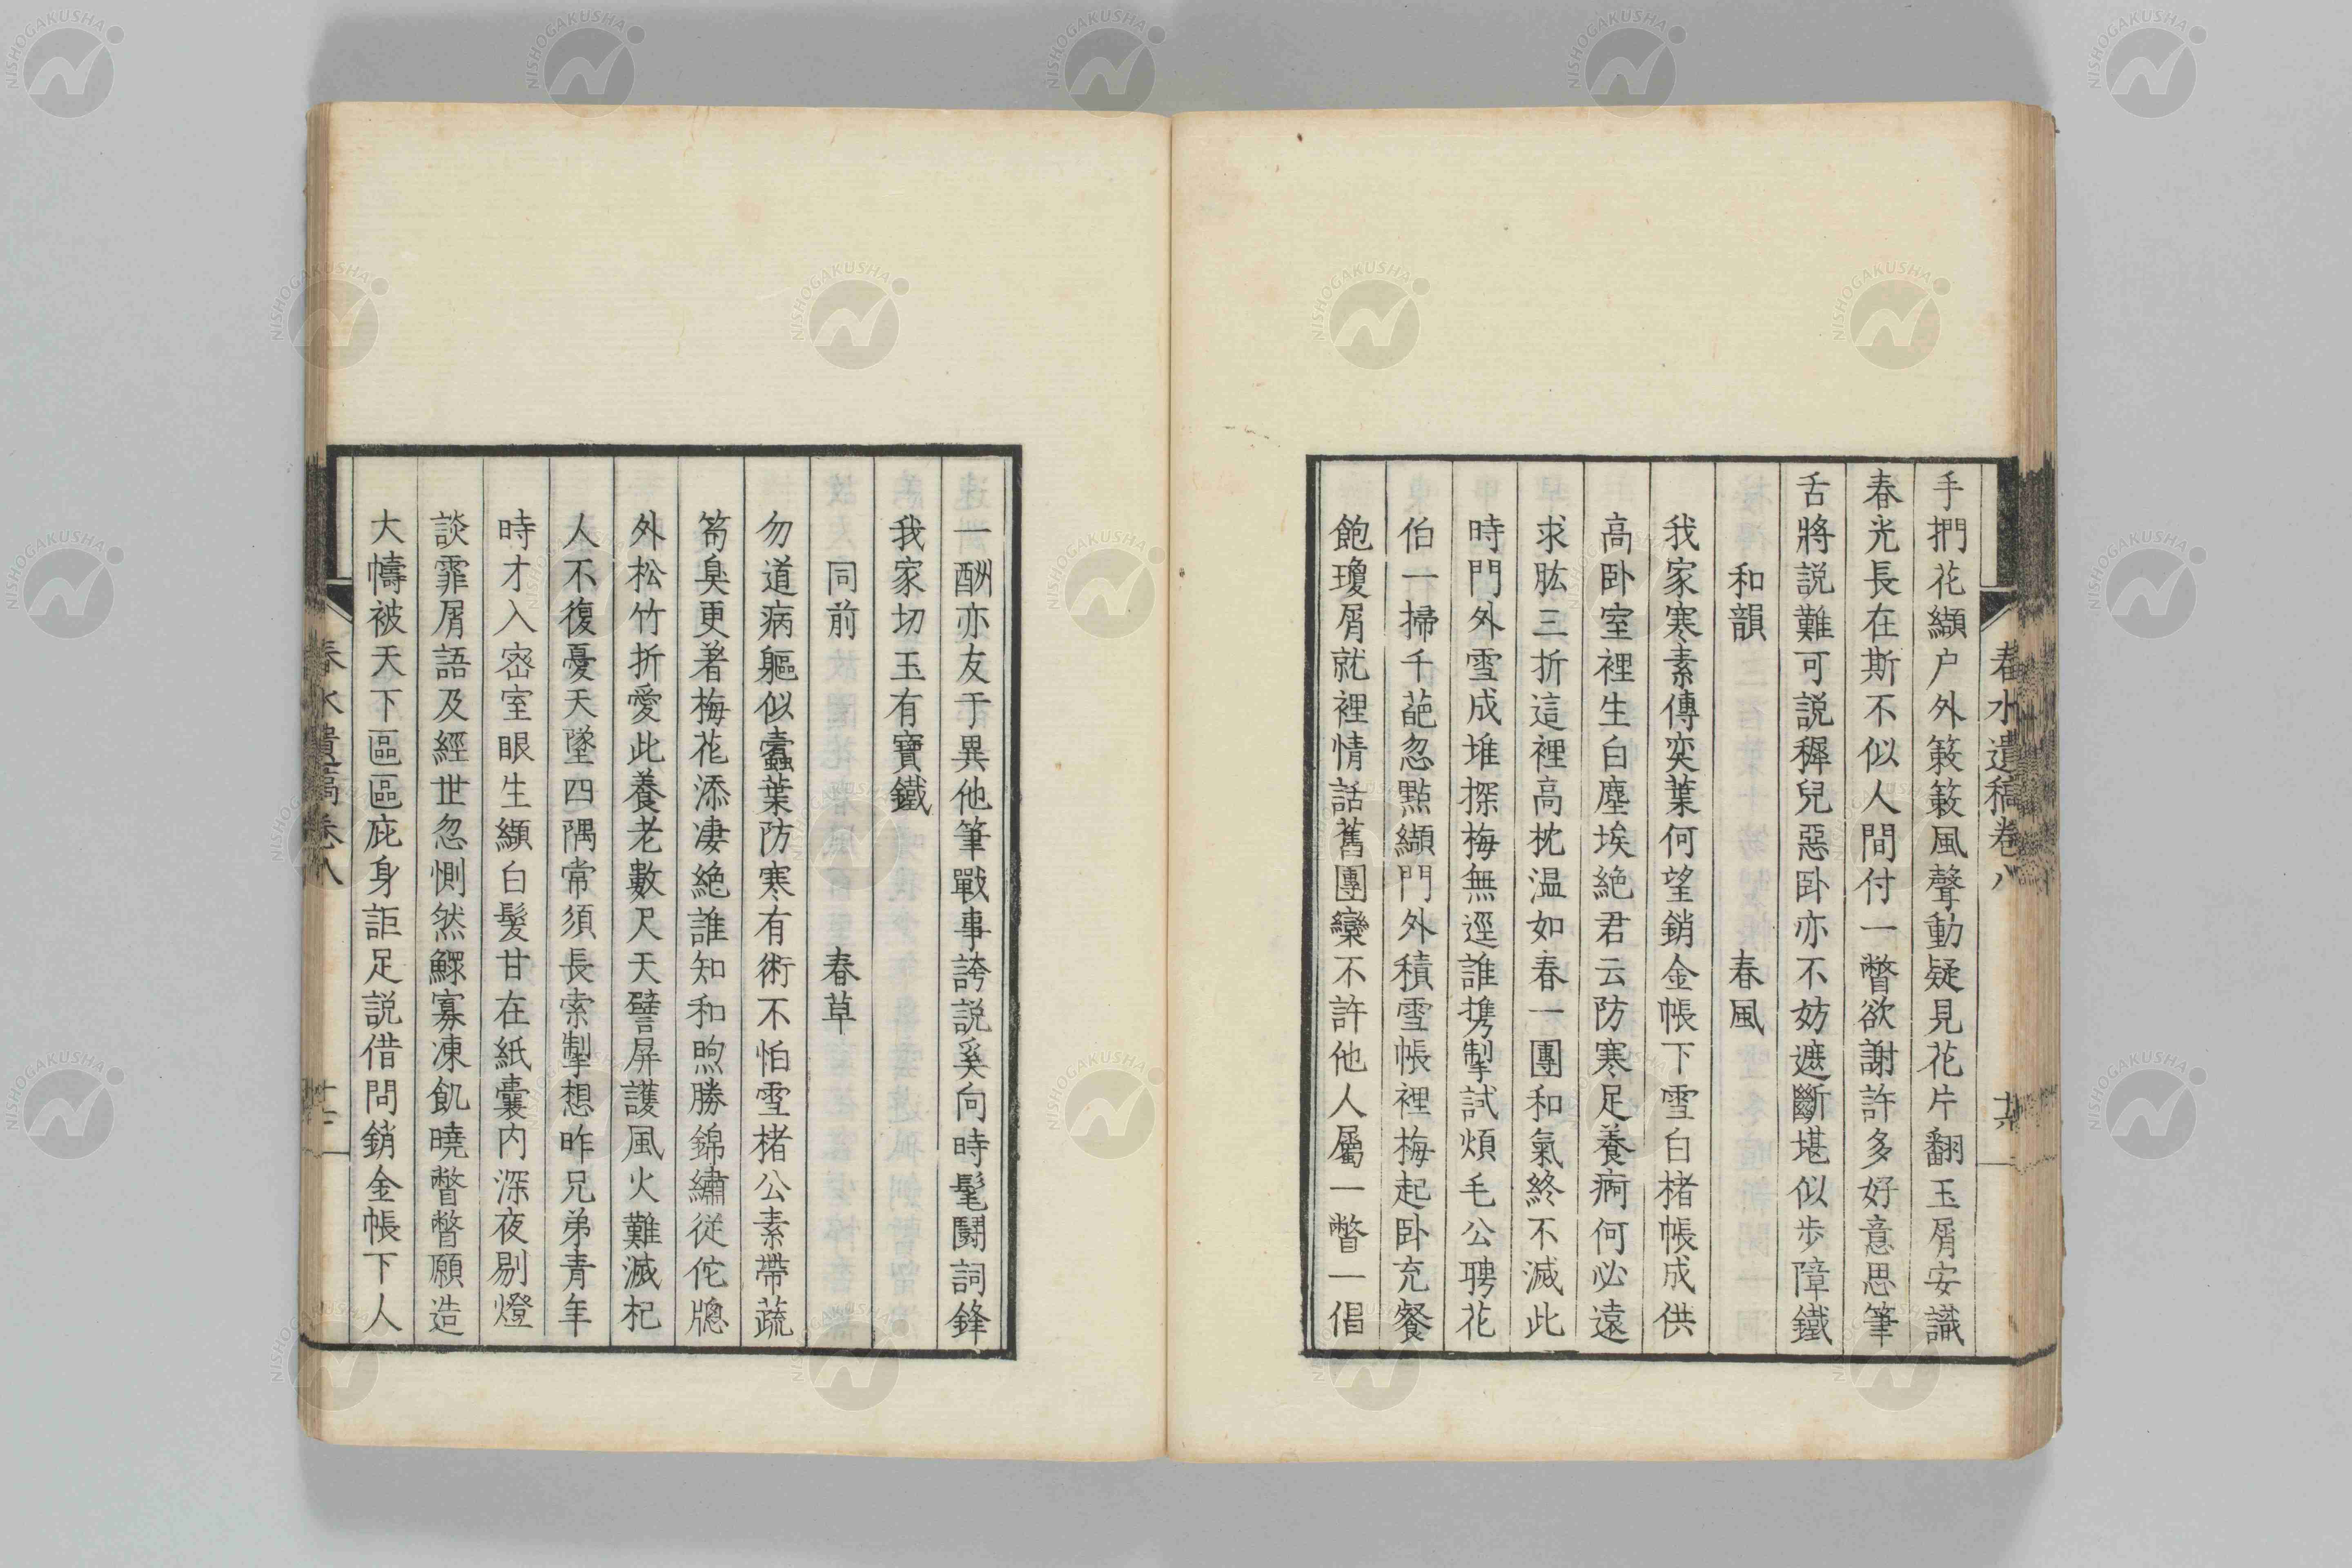 春水遺稿卷八
手捫花纈户外簌簌風聲動疑見花片翻玉屑安識
春光長在斯不似人間付一瞥欲謝許多好意思筆
舌將説難可説穉兒惡卧亦不妨遮斷堪似步障鐵
和韻 春風
我家寒素傳奕葉何望銷金帳下雪白楮帳成供
高卧室裡生白塵埃絶君云防寒足養痾何必遠
求肱三折這裡高枕温如春一團和氣終不滅此
時門外雪成堆探梅無逕誰攜掣試煩毛公聘花
伯一掃千葩忽點纈門外積雪帳裡梅起卧充餐
飽瓊屑就裡情話舊團欒不許他人屬一瞥一倡
一酬亦友于異他筆戰事誇説奚向時髦鬪詞鋒
我家切玉有寶鐵
同前 春草
勿道病軀似蠹葉防寒有術不怕雪楮公素帶蔬
筍臭更著梅花添凄絶誰知和煦勝錦繡從佗牕
外松竹折愛此養老數尺天譬屏護風火難滅杞
人不復憂天墜四隅常須長索掣想昨兄弟青年
時才入密室眼生纈白髮甘在紙囊内深夜剔燈
談霏屑語及經世忽惻然鰥寡凍飢曉瞥瞥願造
大幬被天下區區庇身詎足説借問銷金帳下人
春水遺稿卷八